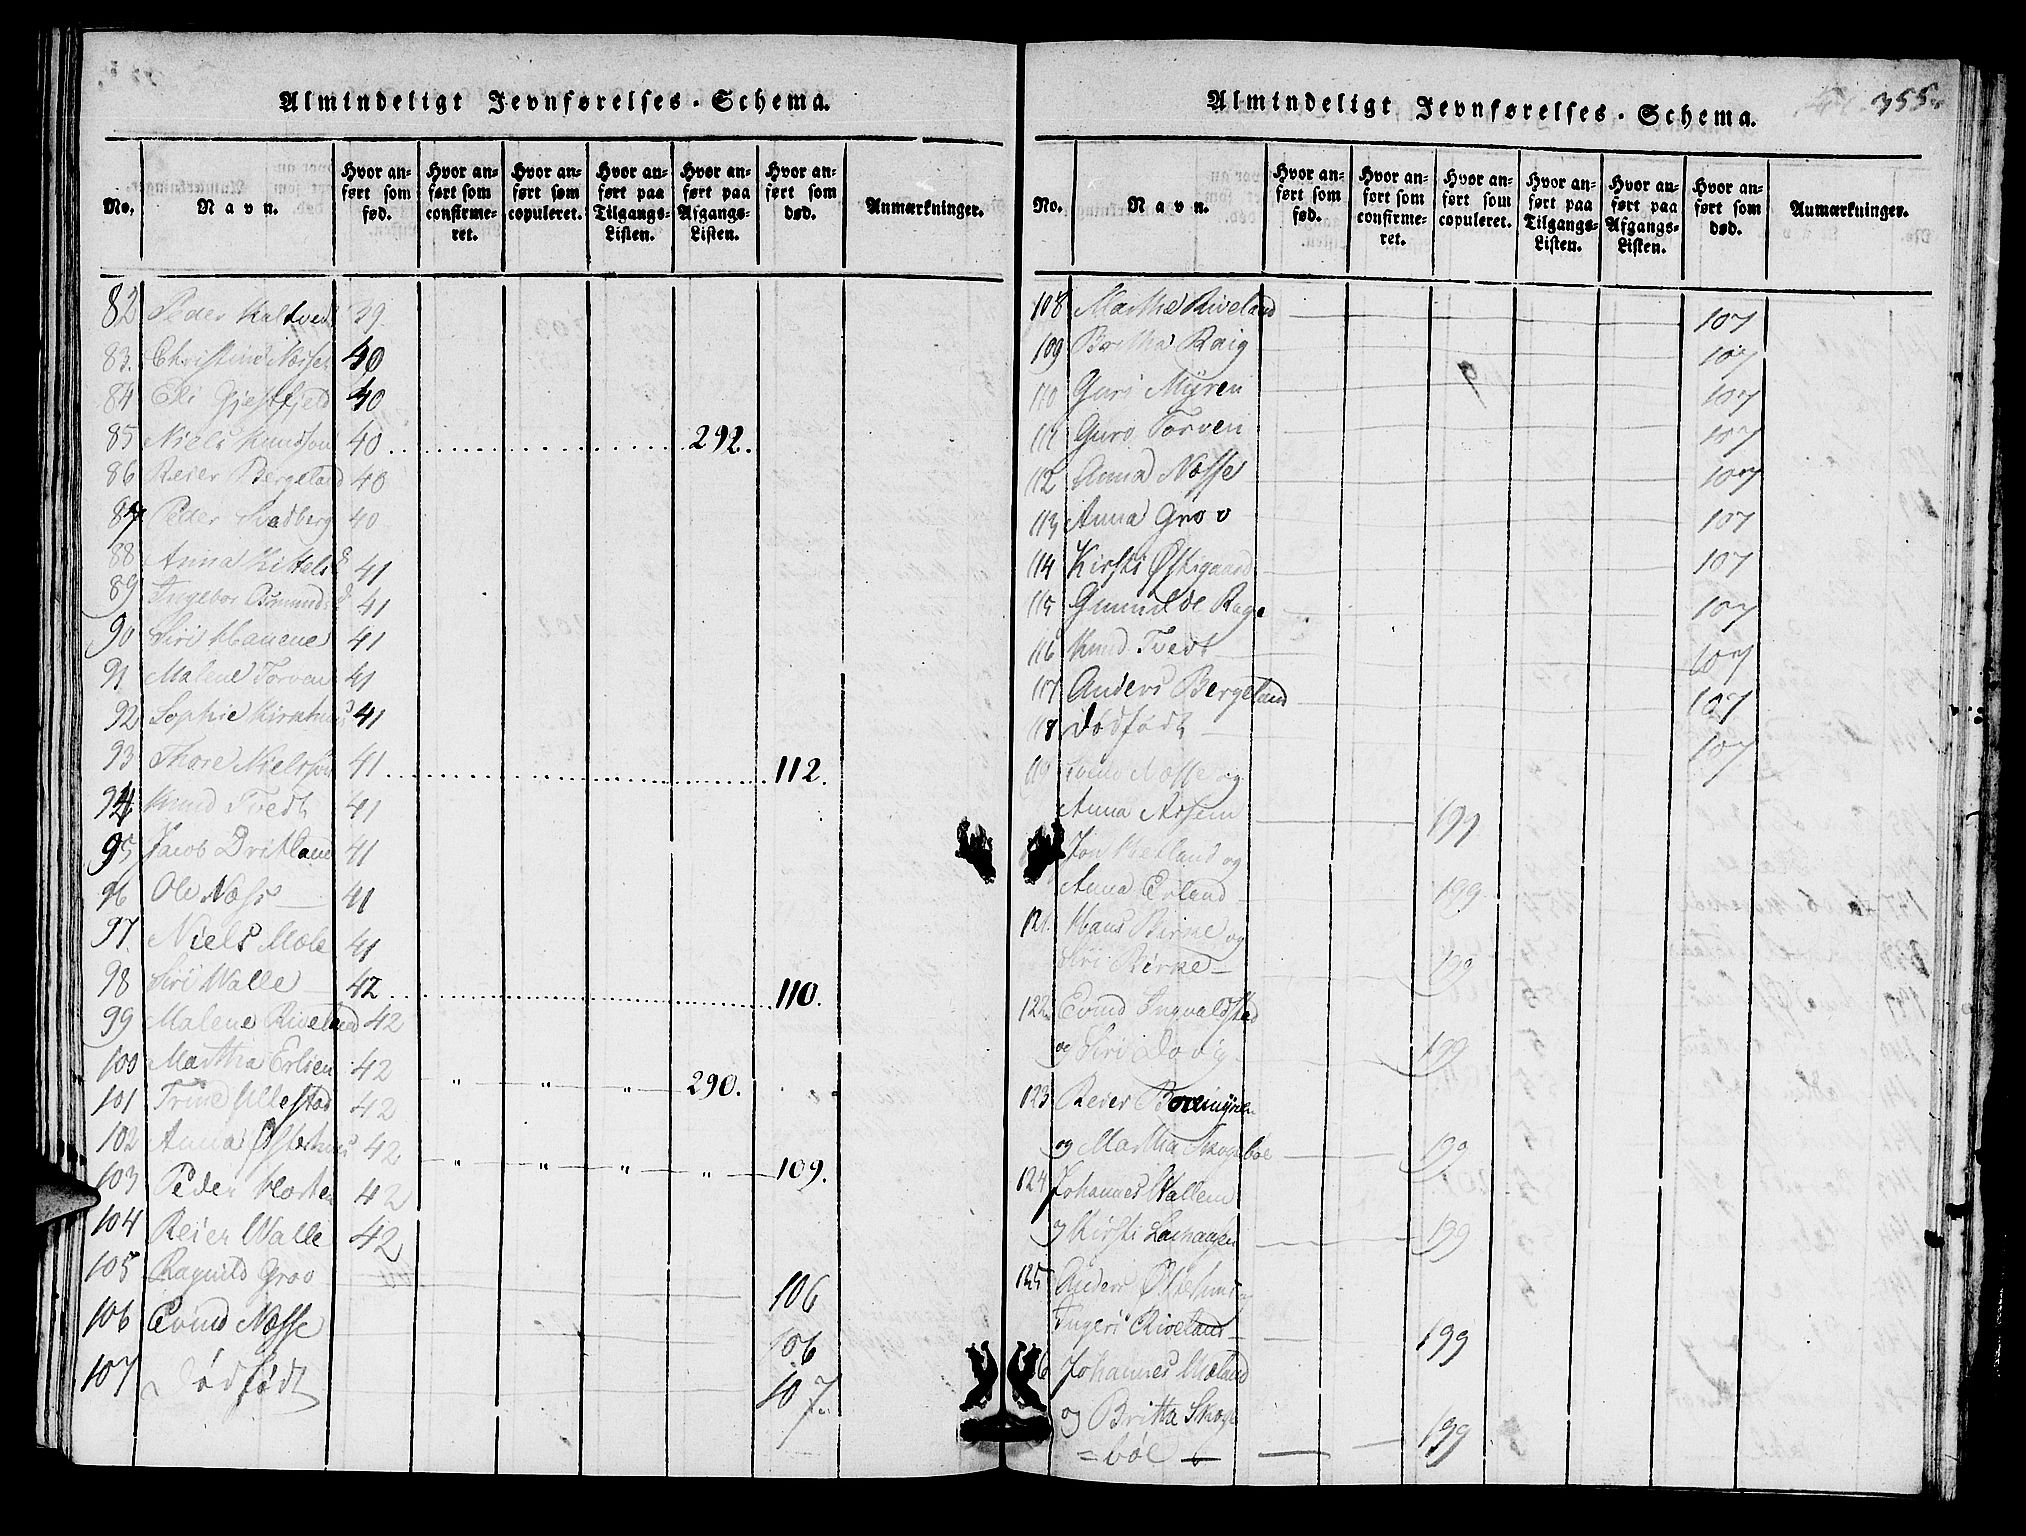 Almindeligt Jevnførelses-Schema.
No. Navn. Hvor anført som fød. Hvor anført som confirmeret. Hvor anført som copuleret. Hvor anført paa Tilgangs-Listen. Hvor anført paa Afgangs-Listen. Hvor anført som død. Anmærkninger.
82 Peder Kaltvedt 39
83. Christine Nærse 40
84 Eli Gjestfjeld 40
85 Niels Knudsøn 40 292.
86 Reier Bergeland 40
87 Peder Svadberg 40
88 Anna Kittels 41
89 Ingebor Osmunds 41
90 Siri Hauene 41
91 Malene Torven 41
92 Sophie 41
93 Thore Nielssøn 41 112.
94 Knud Tvedt 41
95 Jacob Dritland 41
96 Ole Næss 41
97. Niels Mæle 41
98 Siri Walle 42 110.
99 Malene Riveland 42
100 Martha Erlien 42
101 Trine Ullestad 42 " " " 290.
102 Anna Østehuus 42
103 Peder Horten 42 " " " " 109.
104 Reier Walle 42
105 Ragnild Grov 106
106 Evind Næsse 106
107 Dødfødt 107.
355
Almindeligt Jevnførelses-Schema.
No. Navn. Hvor anført som fød. Hvor anført som confirmeret. Hvor anført som copuleret. Hvor anført paa Tilgangs-Listen. Hvor anført paa Afgangs-Listen. Hvor anført som død. Anmærkninger.
108 Martha Riveland 107
109 Bertha Raig 107
110 Guri Myren 107
111 Guro Torven 107
112 Anna Næsse 107
113 Anna Grov 107
114 Kirsti Østigaard 107
115 Gunnilde Rage 107
116 Knud Tvedt 107
117 Anders Bergeland 107
118 Dødfødt 107
119 Næsse og
Anna 199
Jon Ketland og
Anna Erland 199
121. Hans Birke og
Siri Birke 199
122 Evind Ingvaldstad
og Siri Dovig 199
123 Reier
og Martha Skogebøe 199
124 Johannes Wallem
og Kirsti 199
125 Anders Østehuus
Ingeri Riveland 199
6 Johannes Mæland
og Britta Skoge
=bøe 199